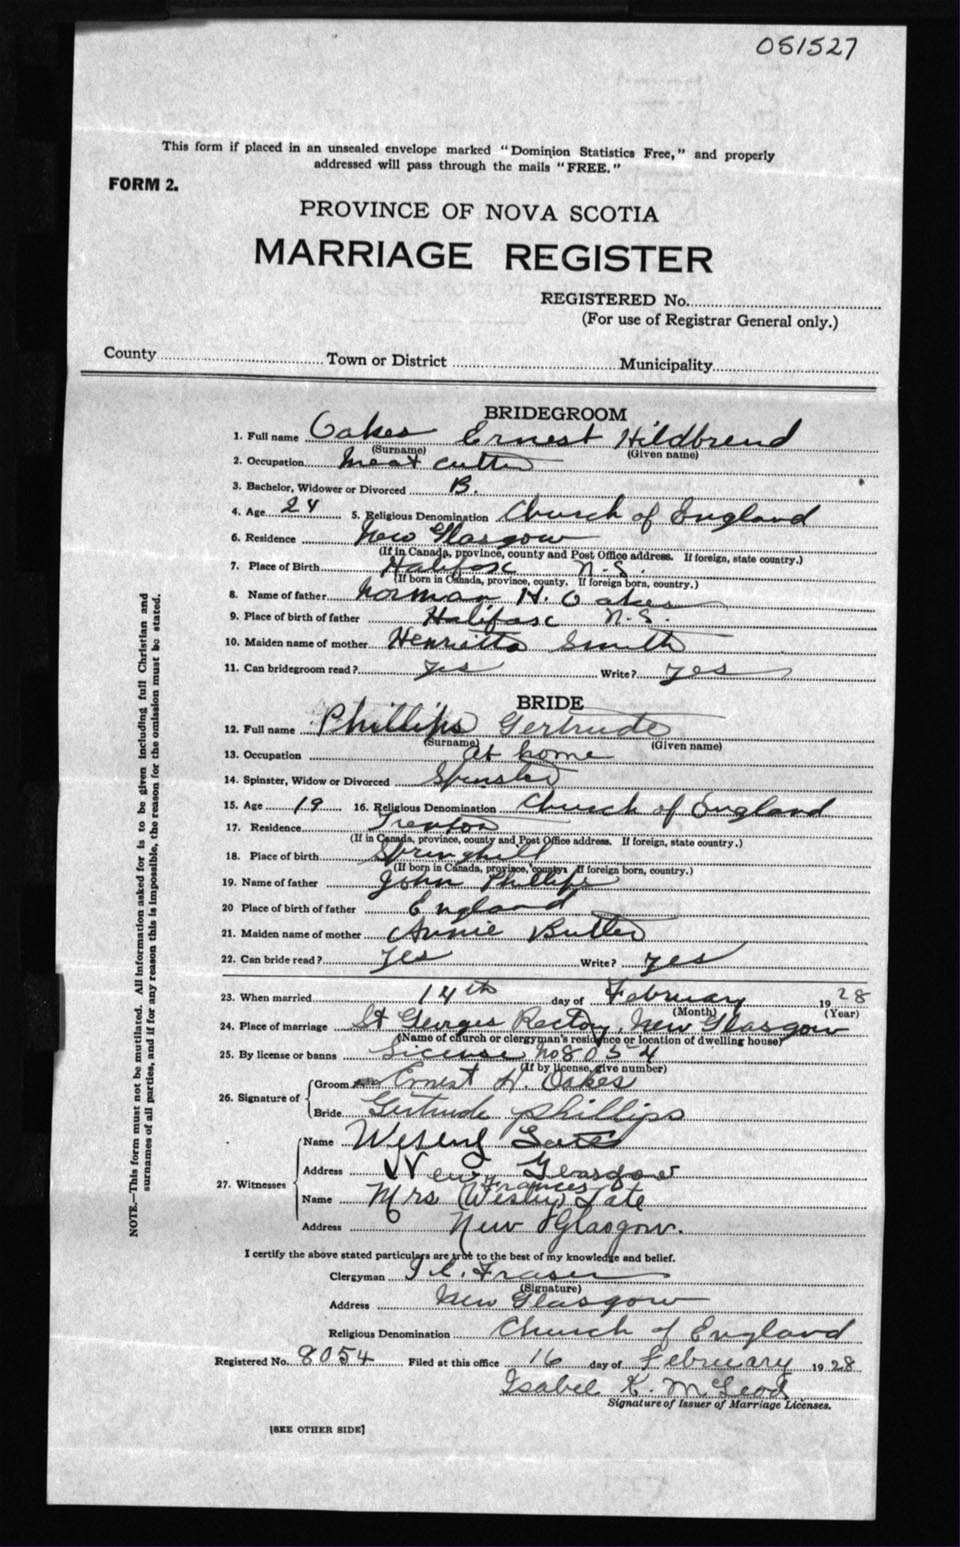 051527
This form if placed in an unsealed envelope marked "Dominion Statistics Free," and properly
addressed will pass through the mails "FREE."
FORM 2.
PROVINCE OF NOVA SCOTIA
MARRIAGE REGISTER
REGISTERED No.
(For use of Registrar General only.)
County Town or District Municipality
BRIDEGROOM
1. Full name Oakes Ernest Hildbrend
(Surname) (Given name)
2. Occupation Meat cutter
3. Bachelor, Widower or Divorced B.
4. Age 24 5. Religious Denomination Church of England
6. Residence New Glasgow
(If in Canada, province, county and Post Office address. If foreign, state country.)
7. Place of Birth Halifax N.S.
(If born in Canada, province, county. If foreign born, country.)
8. Name of father Norman H. Oakes
9. Place of birth of father Halifax N.S.
10. Maiden name of mother Henrietta Smith
11. Can bridegroom read? yes Write? yes
BRIDE
12. Full name Phillips Gertrude
(Surname) (Given name)
13. Occupation at home
14. Spinster, Widow or Divorced Spinster
15. Age 19 16. Religious Denomination Church of England
17. Residence Trenton
(If in Canada, province, county and Post Office address. If foreign, state country.)
18. Place of birth Springhill
(If born in Canada, province, county. If foreign born, country.)
19. Name of father John Phillips
20 Place of birth of father England
21. Maiden name of mother Annie Butler
22. Can bride read? yes Write? yes
23. When married 14th day of February 1928
(Month) (Year)
24. Place of marriage St Georges Rectory, New Glasgow
(Name of church or clergyman's residence or location of dwelling house)
25. By license or banns License No 8054
(If by license, give number)
26. Signature of Groom Ernest H. Oakes
Bride Gertrude Phillips
27. Witnesses
Name Wesley Tate
Address New Glasgow
Frances
Name Mrs (Wesley) Tate
Address New Glasgow.
I certify the above stated particulars are true to the best of my knowledge and belief.
Clergyman Fraser
(Signature)
Address New Glasgow
Religious Denomination Church of England
Registered No. 8054 Filed at this office 16 day of February 1928
Isabel K. McLeod
Signature of Issuer of Marriage Licenses.
[SEE OTHER SIDE]
NOTE.—This form must not be mutilated. All information asked for is to be given including full Christian and
surnames of all parties, and if for any reason this is impossible, the reason for the omission must be stated.